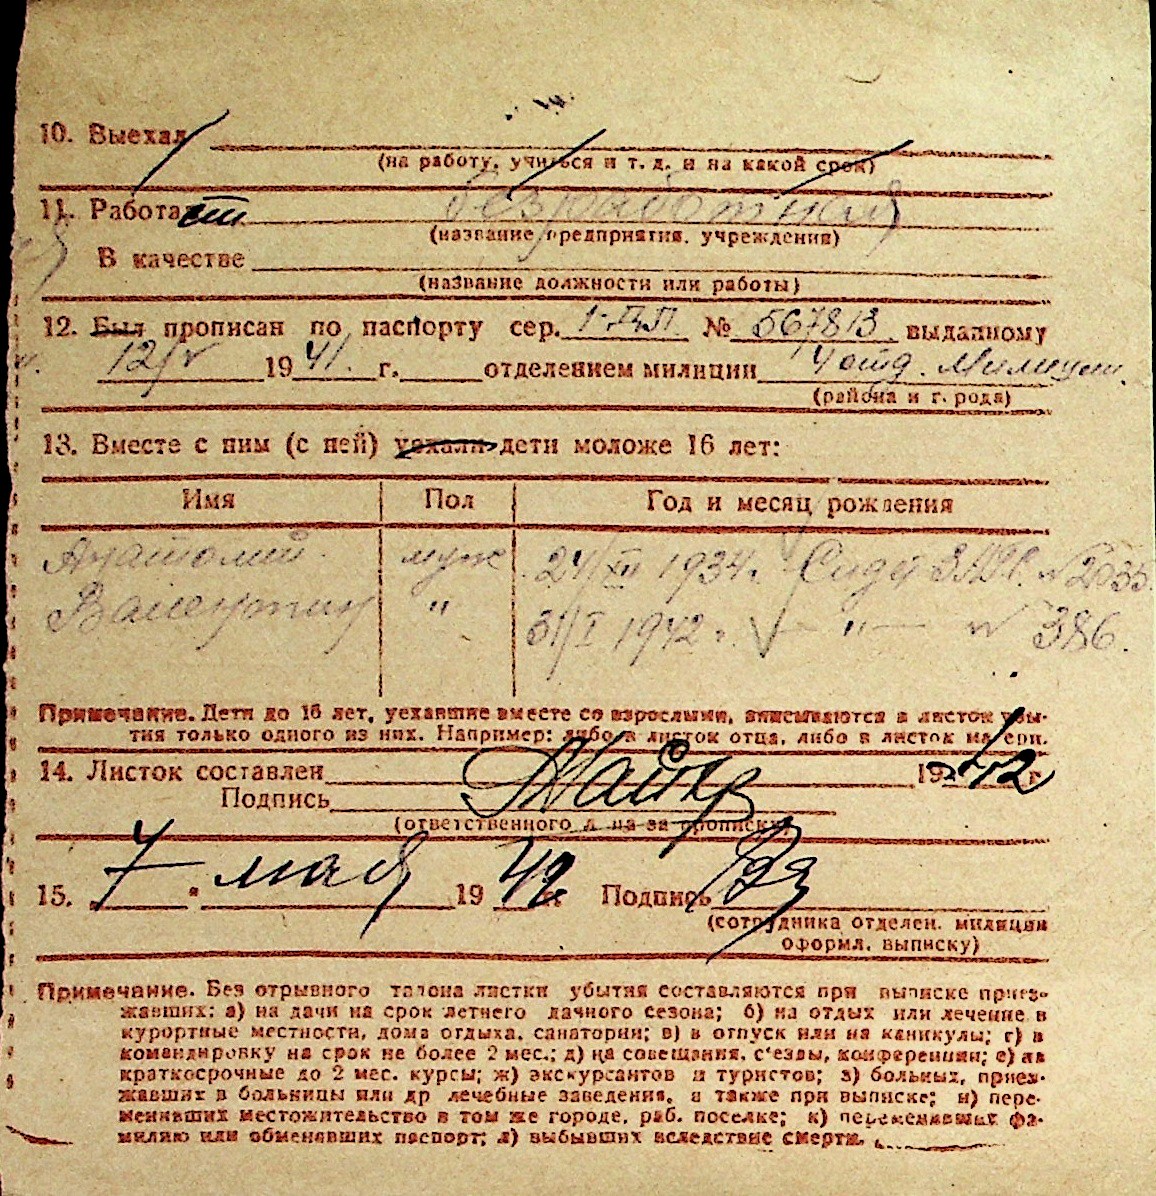 10. Выехал
(на работу, учиться и т. д. и на какой срок)
11. Работает безработная
(название предприятия, учреждения)
В качестве
(название должности или работы)
12. Был прописан по паспорту сер. № 567813 выданному
12/V 1941 г. отделением милиции 4 отд. Милиции
(района и г. рода)
13. Вместе с ним (с ней) уехали дети моложе 16 лет:
Имя Пол Год и месяц рождения
Анатолий муж 24/XII 1934 г. ЗАГС № 2035
Валентин " 31/I 1942 г. — " — № 386.
Примечание. Дети до 16 лет, уехавшие вместе со взрослыми, вписываются в листок убы-
тия только одного из них. Например: либо в листок отца, либо в листок матери.
14. Листок составлен 1942 г.
Подпись
(ответственного л-ца за прописку)
15. 7 " мая 1942 г. Подпись
(сотрудника отделен. милиции
оформл. выписку)
Примечание. Без отрывного талона листки убытия составляются при выписке приез-
жавших: а) на дачи на срок летнего дачного сезона; б) на отдых или лечение в
курортные местности, дома отдыха, санатории; в) в отпуск или на каникулы; г) в
командировку на срок не более 2 мес.; д) на совещания, с'езды, конференции; е) на
краткосрочные до 2 мес. курсы; ж) экскурсантов и туристов; з) больных, приез-
жавших в больницы или др лечебные заведения, а также при выписке; и) пере-
менивших местожительство в том же городе, раб. поселке; к) переменивших фа-
милию или обменявших паспорт; л) выбывших вследствие смерти.